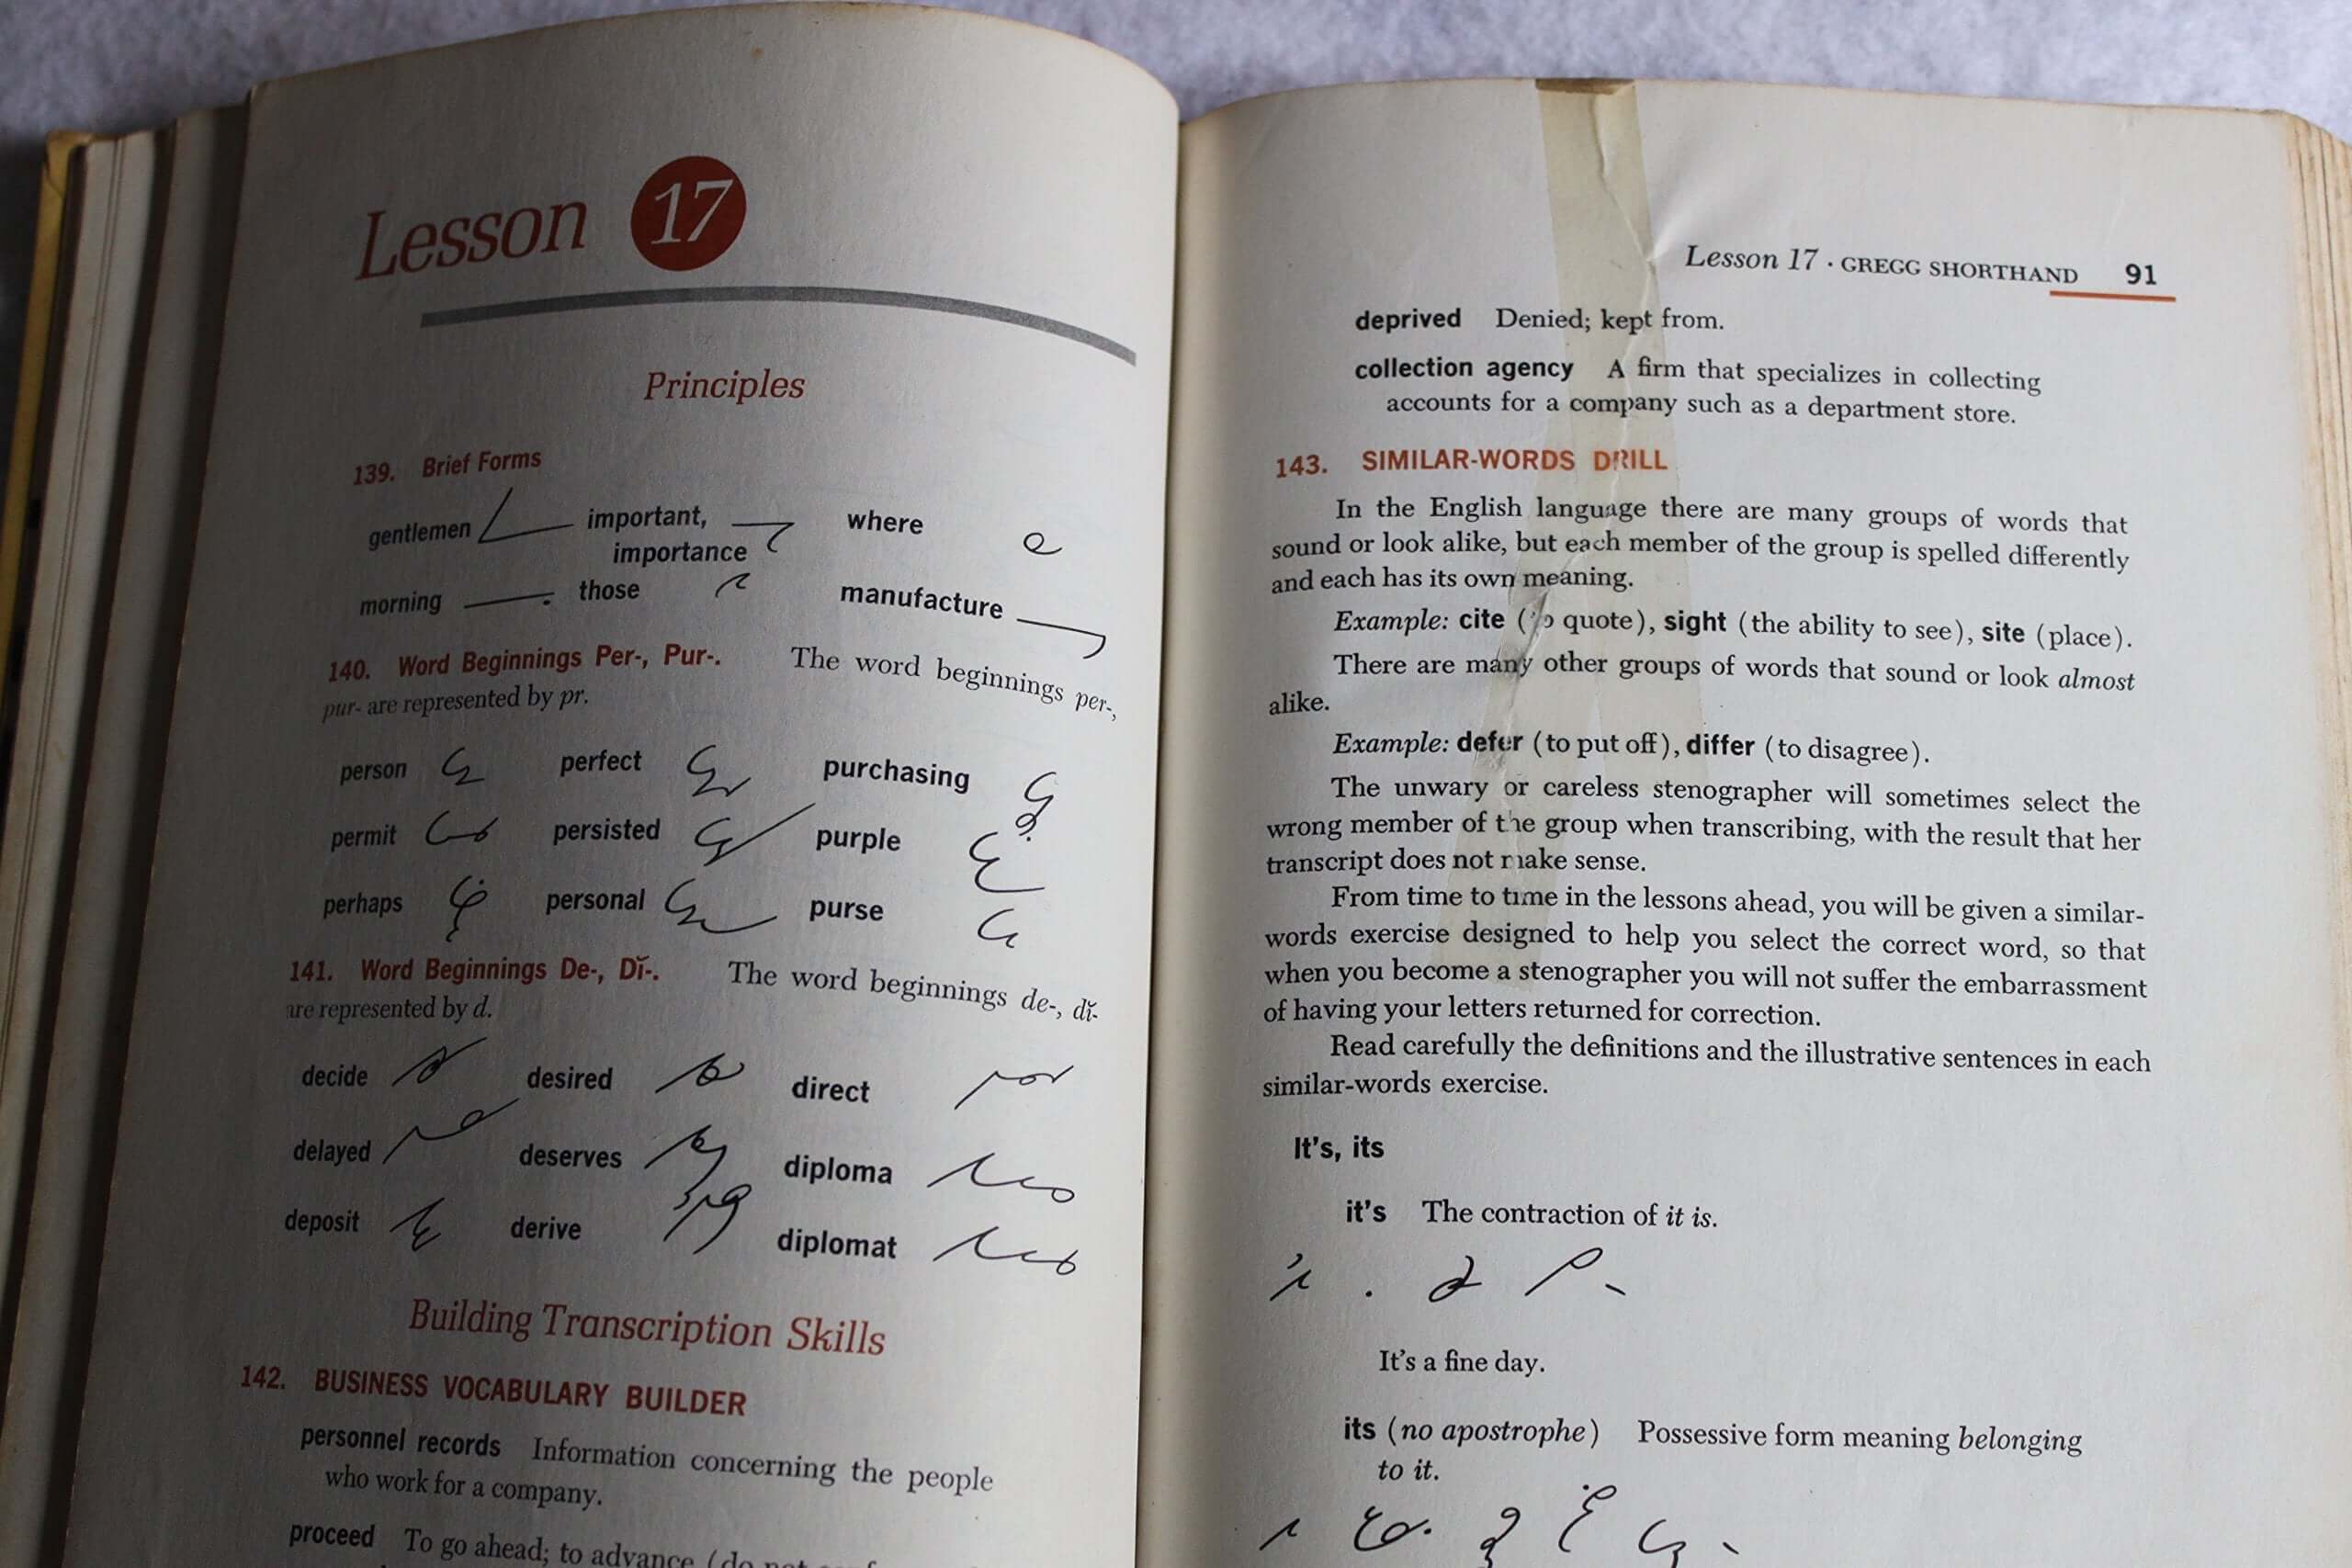 Lesson 17
Principles
139. Brief Forms
gentlemen important, where
importance
morning those manufacture
140. Word Beginnings Per-, Pur-. The word beginnings per-,
pur- are represented by pr.
person perfect purchasing
permit persisted purple
perhaps personal purse
141. Word Beginnings De-, Dĭ-. The word beginnings de-, dĭ-
are represented by d.
decide desired direct
delayed deserves diploma
deposit derive diplomat
Building Transcription Skills
142. BUSINESS VOCABULARY BUILDER
personnel records Information concerning the people
who work for a company.
proceed To go ahead; to advance (do not
Lesson 17 · GREGG SHORTHAND 91
deprived Denied; kept from.
collection agency A firm that specializes in collecting
accounts for a company such as a department store.
143. SIMILAR-WORDS DRILL
In the English language there are many groups of words that
sound or look alike, but each member of the group is spelled differently
and each has its own meaning.
Example: cite (to quote), sight (the ability to see), site (place).
There are many other groups of words that sound or look almost
alike.
Example: defer (to put off), differ (to disagree).
The unwary or careless stenographer will sometimes select the
wrong member of the group when transcribing, with the result that her
transcript does not make sense.
From time to time in the lessons ahead, you will be given a similar-
words exercise designed to help you select the correct word, so that
when you become a stenographer you will not suffer the embarrassment
of having your letters returned for correction.
Read carefully the definitions and the illustrative sentences in each
similar-words exercise.
It's, its
it's The contraction of it is.
It's a fine day.
its (no apostrophe) Possessive form meaning belonging
to it.